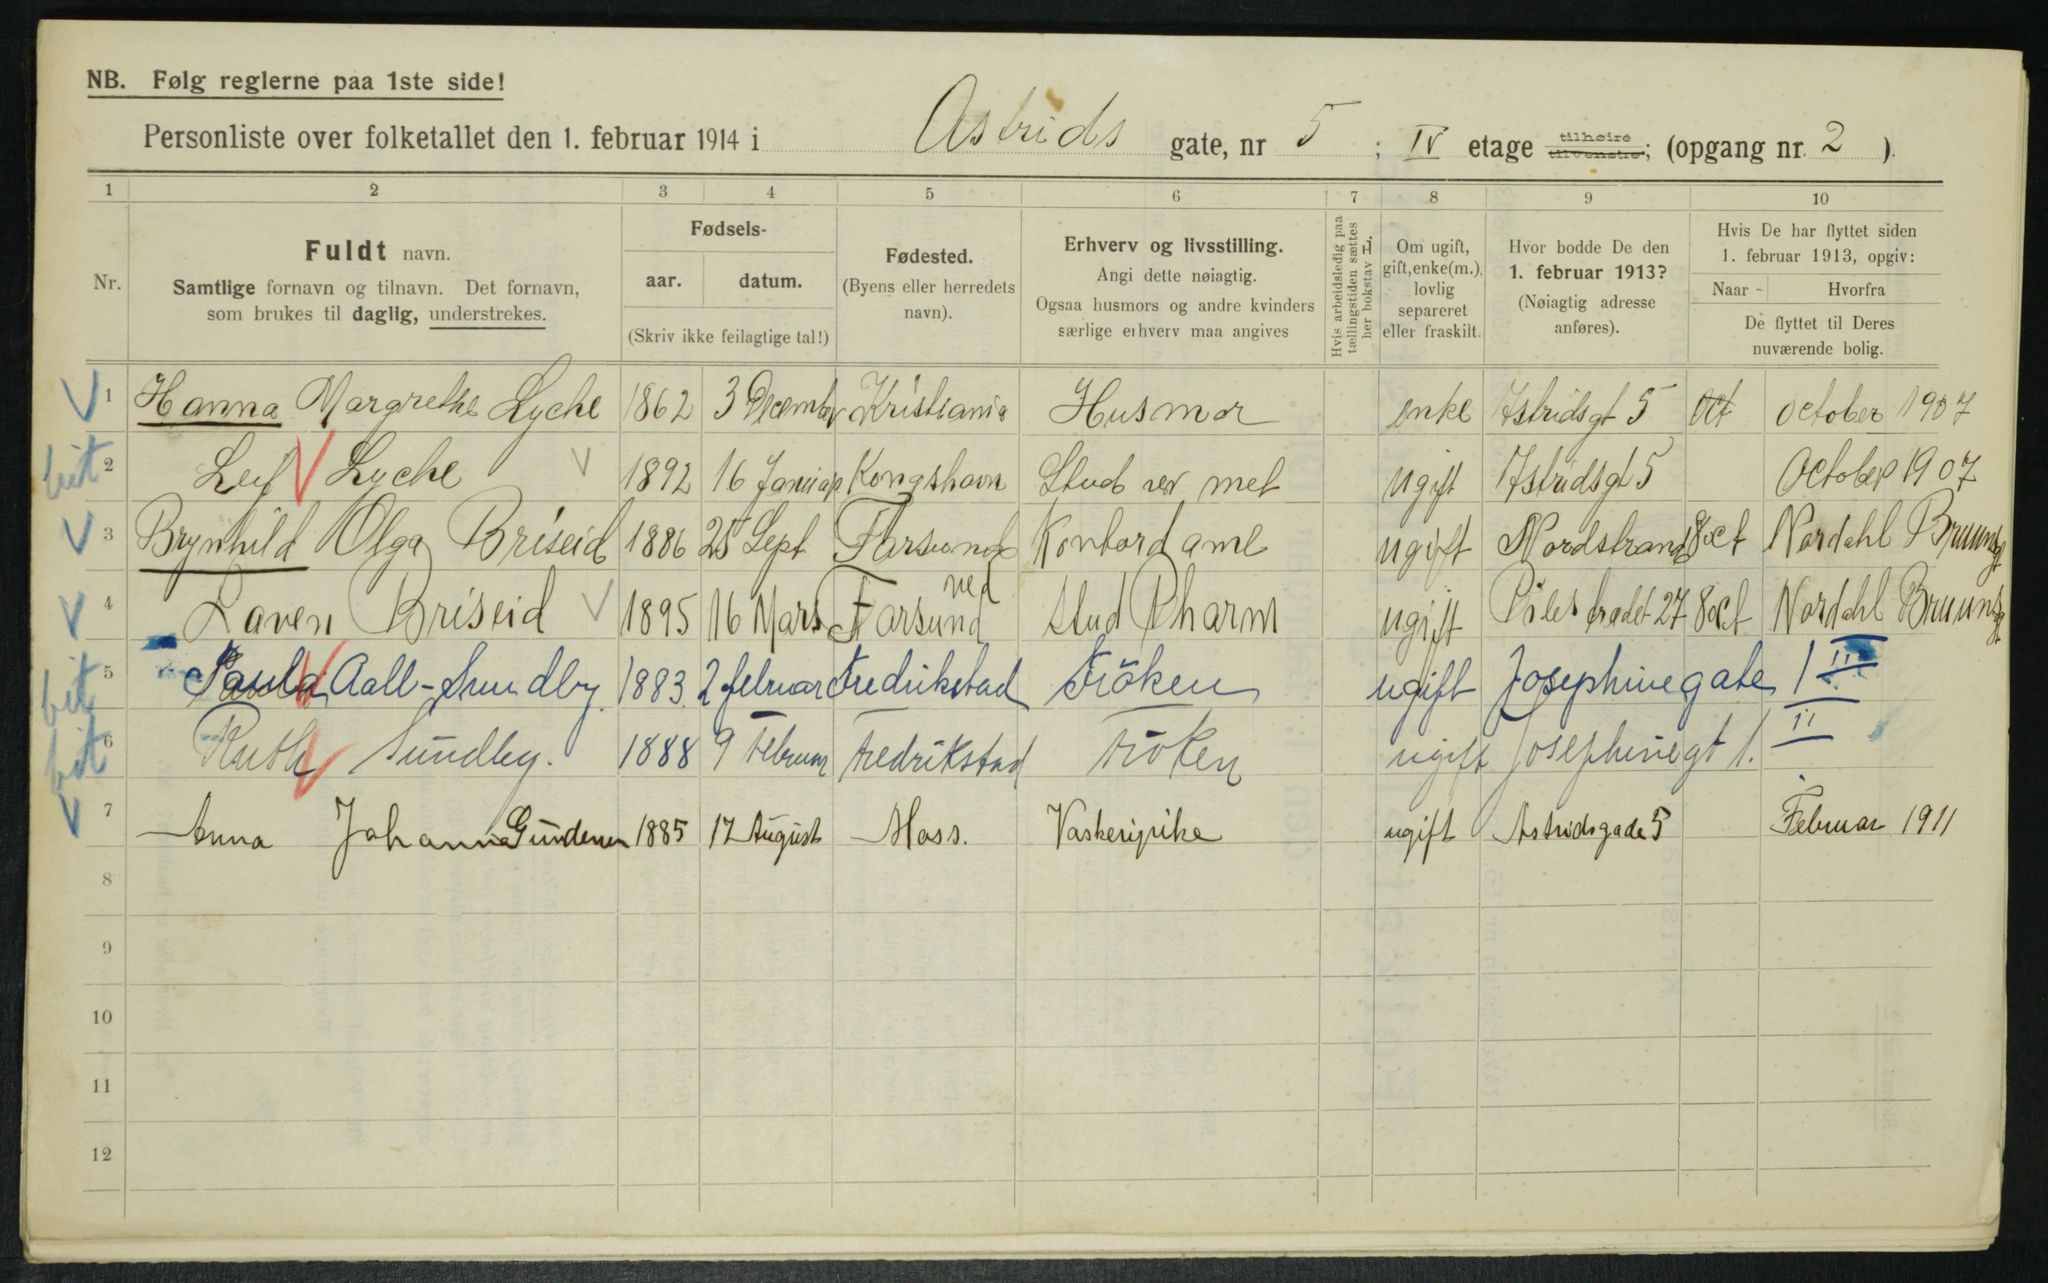 NB. Følg reglerne paa 1ste side!
Personliste over folketallet den 1. februar 1914 i Astrids gate, nr 5 ; IV etage tilhøire tilvenstre; (opgang nr. 2 ).
1 2 3 4 5 6 7 8 9 10
Nr.
Fuldt navn.
Samtlige fornavn og tilnavn. Det fornavn,
som brukes til daglig, understrekes.
Fødsels-
aar. datum.
(Skriv ikke feilagtige tal!)
Fødested.
(Byens eller herredets
navn).
Erhverv og livsstilling.
Angi dette nøiagtig.
Ogsaa husmors og andre kvinders
særlige erhverv maa angives
Hvis arbeidsledig paa
tællingstiden sættes
her bokstav L.
Om ugift,
gift, enke(m.),
lovlig
separeret
eller fraskilt.
Hvor bodde De den
1. februar 1913?
(Nøiagtig adresse
anføres).
Hvis De har flyttet siden
1. februar 1913, opgiv:
Naar - Hvorfra
De flyttet til Deres
nuværende bolig.
1 Hanna Margrethe Lyche 1862 3 December Kristiania Husmor enke Astridsgt 5 Oct October 1907
2 Leif Lyche 1892 16 Januar Kongshavn Stud ugift Astridsgt 5 October 1907
3 Brynhild Olga Briseid 1886 25 Sept Farsund Kontordame ugift Nordstrand 8 oct Nordahl Brunsgt
ved
4 Briseid 1895 16 Mars Farsund stud Pharm ugift Pilestrædet 27 8 Oct Nordahl Brunsgt
bet 5 Paula Aall-Sundby. 1883. 2 februar Fredrikstad Fröken ugift Josephinegate 1 II
bet 6 Ruth Sundby. 1888 9 Februar Fredrikstad Fröken ugift Josephinegt 1. II
7 Anna Johanna Gundersen 1885 17 August Moss. Vaskeripike ugift Astridsgade 5 Februar 1911
8
9
10
11
12